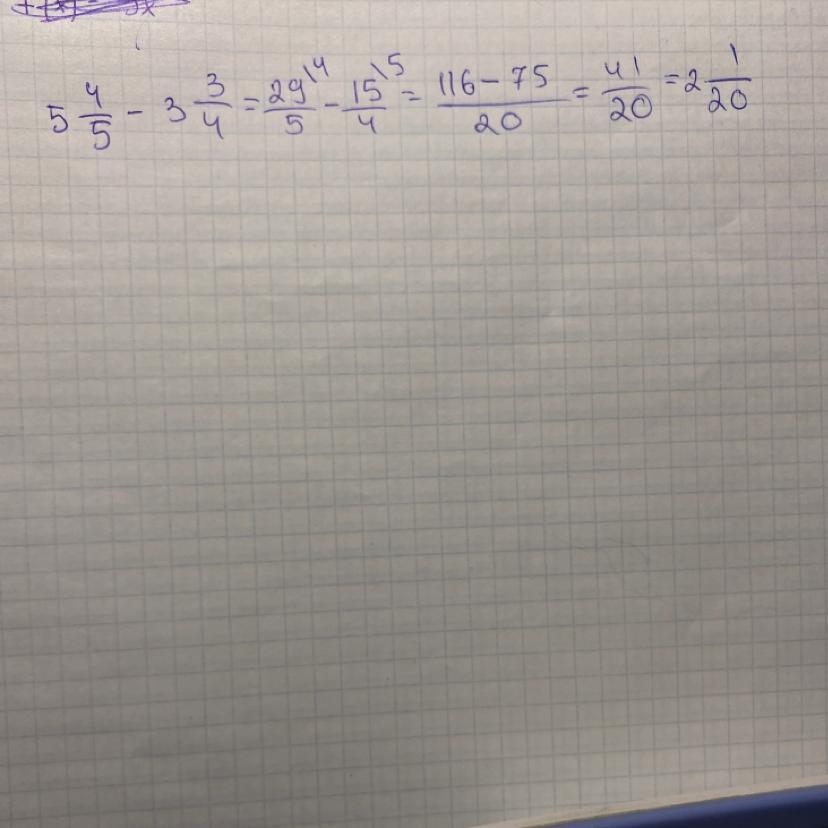 5 4/5 - 3 3/4 = 29\4/5 - 15\5/4 = 116 - 75/20 = 41/20 = 2 1/20